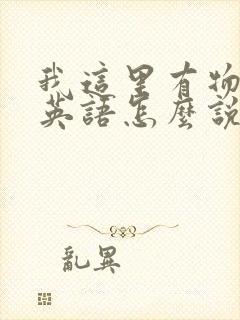 我這里有物
英語怎麼說
亂異